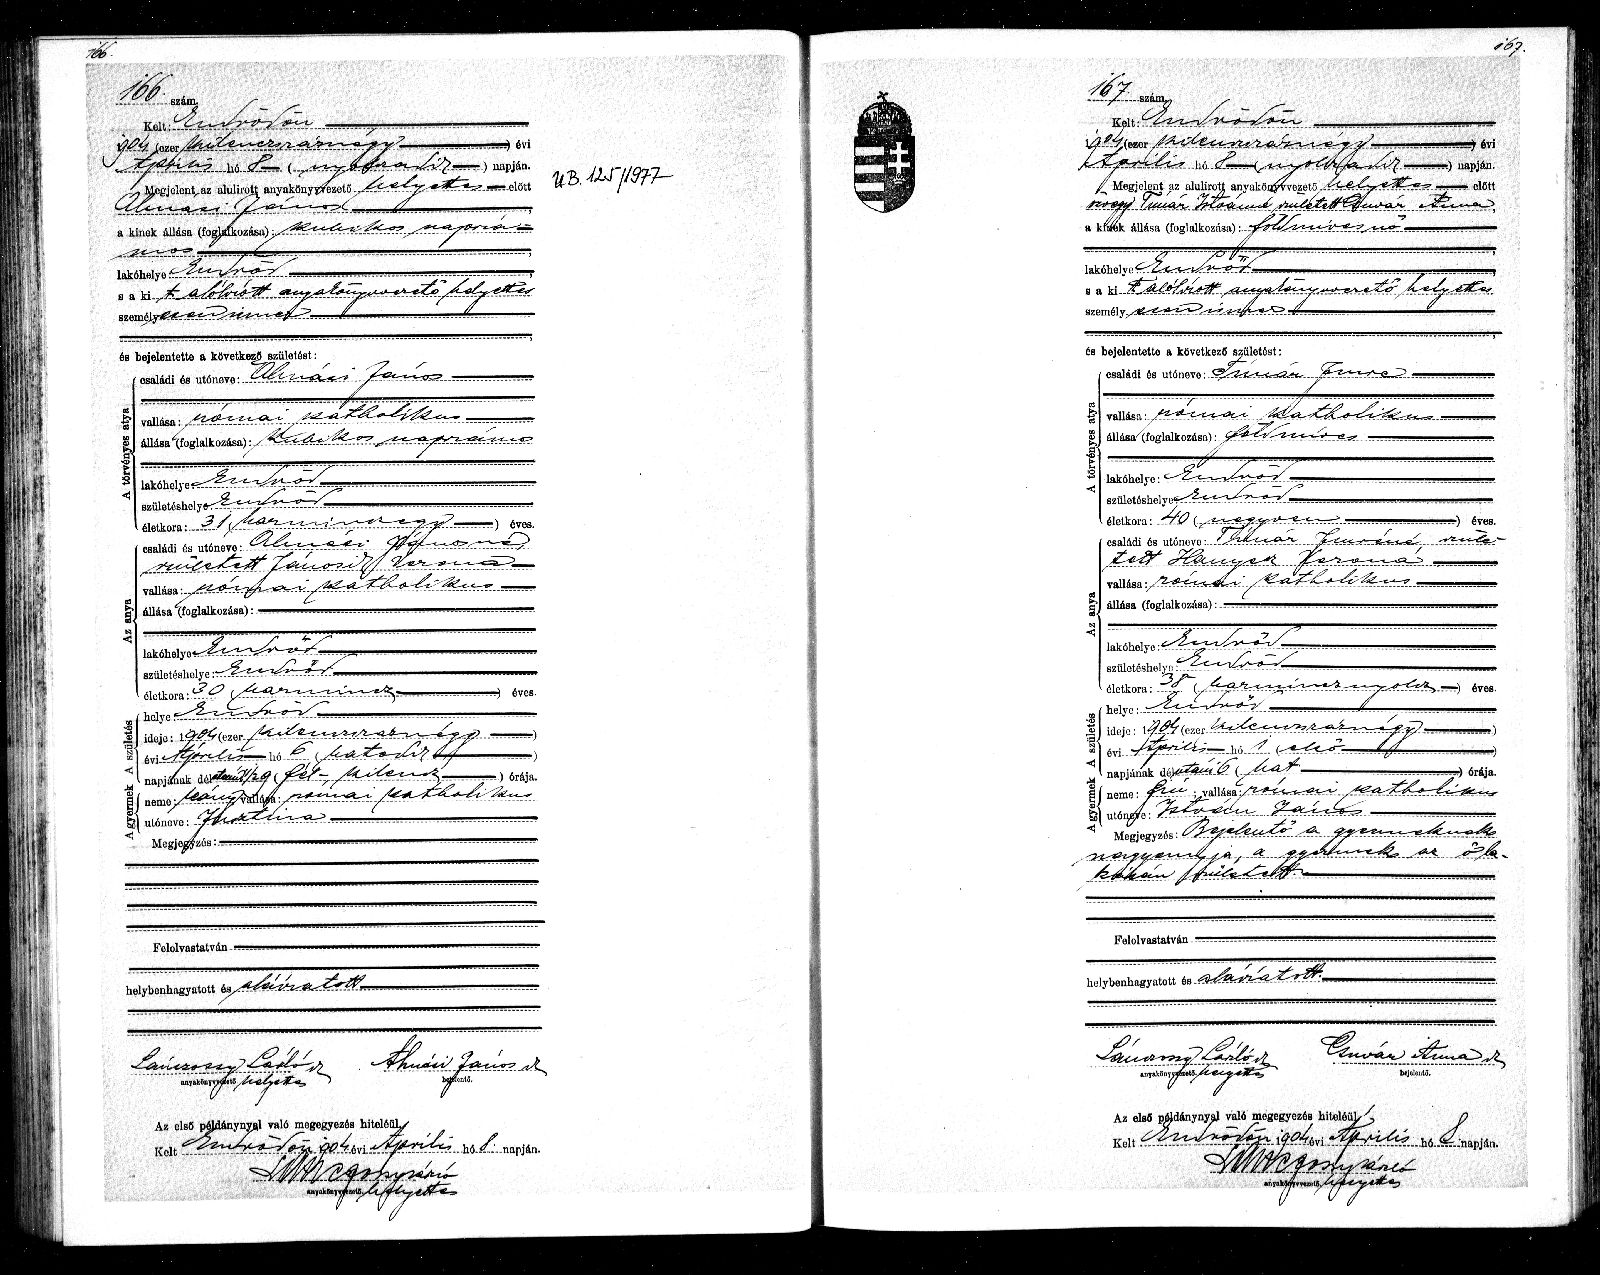 166.
166. szám.
Kelt: Endrődön
1904 (ezer kilenczszáznégy) évi
Április hó 8 (nyolczadik) napján.
Megjelent az alulirott anyakönyvvezető helyettes előtt
Almási János
a kinek állása (foglalkozása): kubikos napszá-
mos
lakóhelye Endrőd
s a ki t alólirott anyakönyvvezető helyettes
személyesen ismer
és bejelentette a következő születést:
A törvényes atya
családi és utóneve: Almási János
vallása: római katholikus
állása (foglalkozása): kubikos napszámos
lakóhelye Endrőd
születéshelye Endrőd
életkora: 31 (harminczegy) éves.
Az anya
családi és utóneve: Almási Jánosné
született Jánosik Verona
vallása: római katholikus
állása (foglalkozása):
lakóhelye Endrőd
születéshelye: Endrőd
életkora: 30 (harmincz) éves.
A gyermek A születés
helye Endrőd
ideje: 1904 (ezer kilenczszáznégy)
évi Április hó 6 (hatodik)
napjának délután 1/2 9 (fél kilencz) órája.
neme: leány vallása: római katholikus
utóneve: Jusztina
Megjegyzés:
Felolvastatván
helybenhagyatott és aláiratott
Lánczossy László sk Almási János sk
anyakönyvvezető helyettes bejelentő.
Az első példánynyal való megegyezés hiteléül,
Kelt Endrődön 1904 évi Április hó 8. napján.
anyakönyvvezető. helyettes
UB. 125/1977
167.
167. szám.
Kelt: Endrődön
1904 (ezer kilenczszáznégy) évi
Április hó 8 (nyolczadik) napján.
Megjelent az alulirott anyakönyvvezető helyettes előtt
özvegy Timár Istvánné született Guvár Anna,
a kinek állása (foglalkozása): földmivesnő
lakóhelye Endrőd
s a ki t alólirott anyakönyvvezető helyettes
személyesen ismer
és bejelentette a következő születést:
A törvényes atya
családi és utóneve: Timár Imre
vallása: római katholikus
állása (foglalkozása): földmives
lakóhelye: Endrőd
születéshelye Endrőd
életkora: 40 (negyven) éves.
Az anya
családi és utóneve: Timár Imréné szüle-
tett Hanyecz Veroná
vallása: római katholikus
állása (foglalkozása):
lakóhelye: Endrőd
születéshelye: Endrőd
életkora: 38 (harmincznyolcz) éves.
A gyermek A születés
helye: Endrőd
ideje: 1904 (ezer kilenczszáznégy)
évi Április hó 1 első
napjának délutáni 6 (hat) órája.
neme: fiu; vallása: római katholikus
utóneve: István János
Megjegyzés: Bejelentő a gyermeknek
nagyanyja, a gyermek az ő la-
kásán született
Felolvastatván
helybenhagyatott és aláiratott.
Lánczossy László sk Guvár Anna sk
anyakönyvvezető. helyettes bejelentő.
Az első példánynyal való megegyezés hiteléül,
Kelt Endrődön 1904 évi Április hó 8 napján.
anyakönyvvezető. helyettes